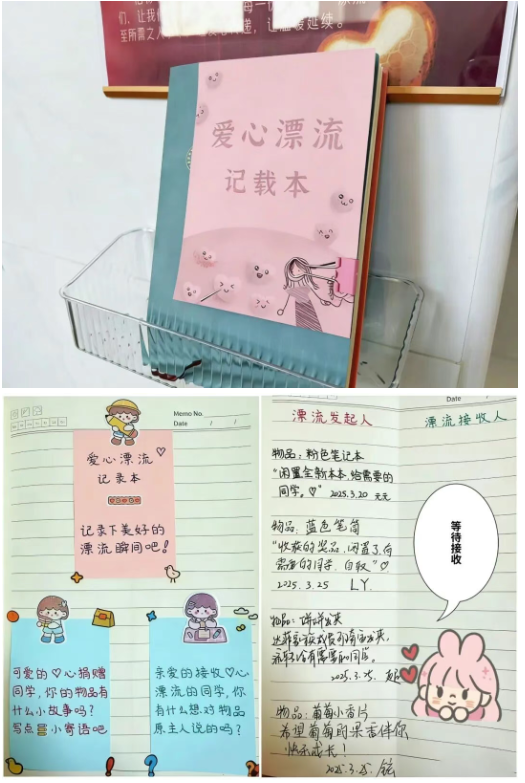 们,让我
每一
至所需之人
递,让温暖延续。
爱心漂流
记载本
Memo No.
Date / /
爱心漂流♡
记录本
记录下美好的
漂流瞬间吧!
可爱的♡心捐赠
同学,你的物品有
什么小故事吗?
写点小寄语吧
亲爱的接收心
漂流的同学,你
有什么想对物品
原主人说的吗?
Date / /
漂流发起人
漂流接收人
物品:粉色笔记本
“闲置全新本本,给需要的
同学。♡” 2025.3.20 元元
物品:蓝色笔筒
“收获的奖品,闲置了,有
需要的同学,自取”♡
2025.3.25 LY.
等待接收
物品:
2025.3.25.
物品:葡萄小香片
希望葡萄的果香伴你
快乐成长!
2025.3.25 铭